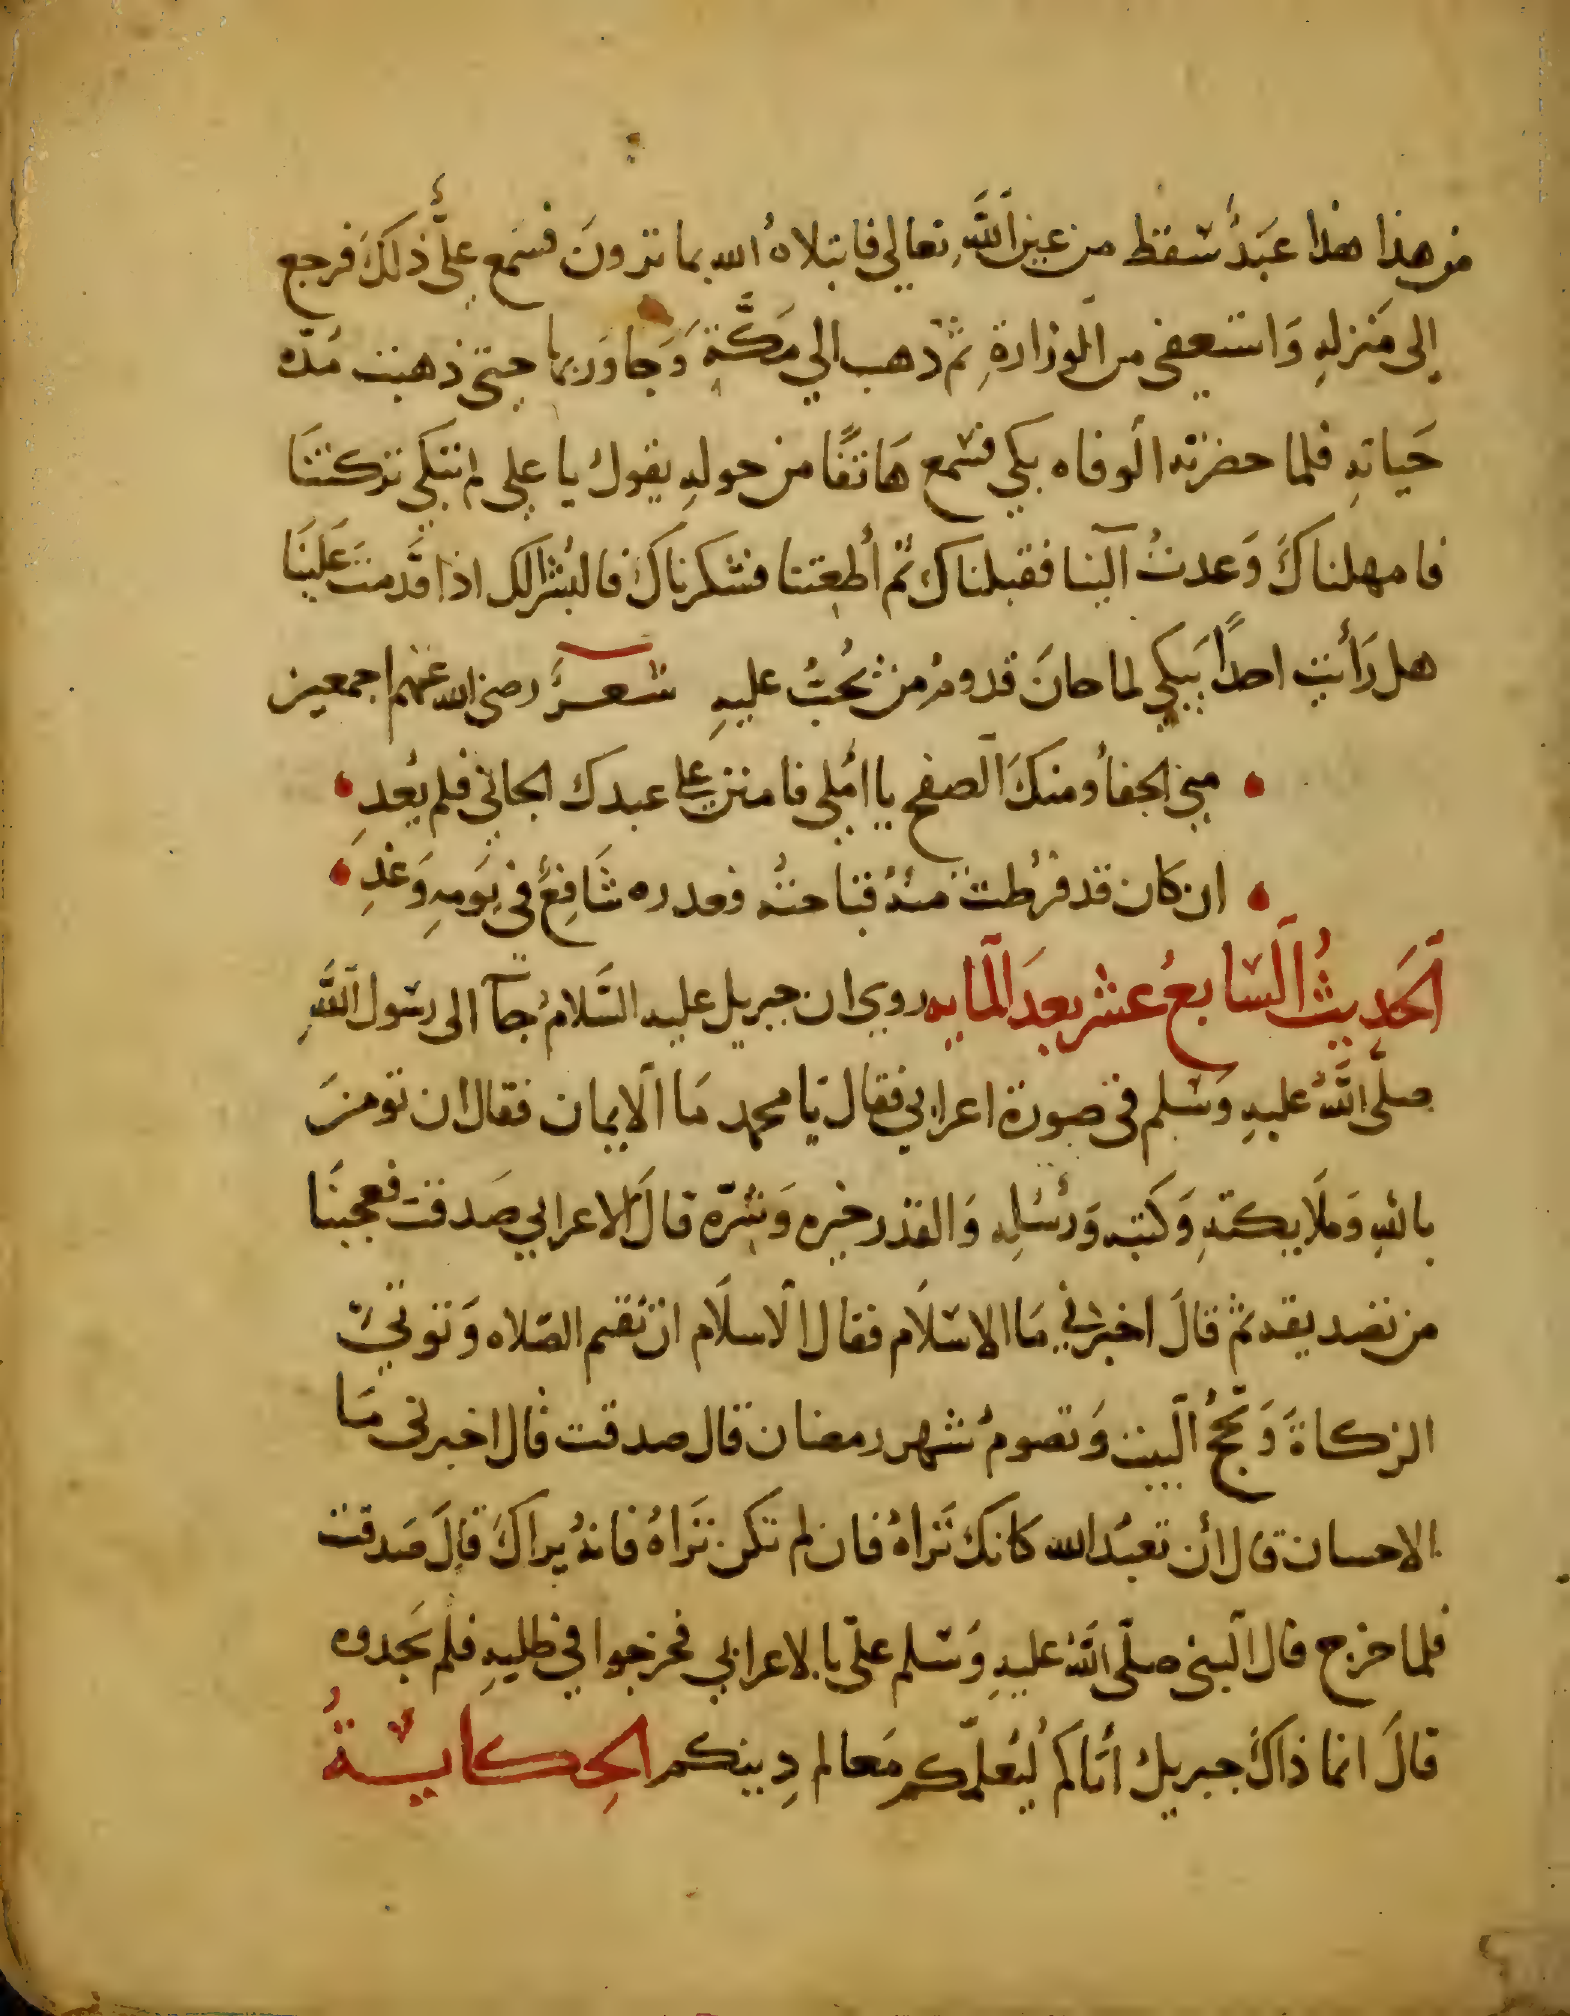 من هذا هذا عَبَدُ سَقط من عين اللَّهِ تعالى فابتلاهُ الله بما ترونَ فسَمع عليٌّ ذلكَ فرجع
إلى مَنزلهِ وَاستعفى من الوزارةِ ثم ذهب الي مَكَّةَ وَجاوَر بها حتى ذهبت مُدّه
حَياتهِ فلما حضرته الوفاه بكي فسَمع هَاتفًا من حولهِ يقول يا علي لم تبكي تركتنَا
فامهلناكَ وَعدتُ الينا فقبلناك ثُم أطعتنا فشكرناك فالبُشرالك اذا قَدمتَ عَلينَا
هل رَأيت احدًا يَبكي لما حانَ قدومُ من يُحبُّ عليهِ شعرَ رضي الله عَنهم اجمعين
مني الجفاُ ومنكَ الصفح يا املي فامنن على عبدك الجاني فلم يعُدِ
ان كان قد فرُطت منهُ قباحتهُ فعدره شَافِعٌ في يَومِهِ وَغدِ
الحَديثُ السَابعُ عشر بعدَ المايه روي ان جبريل عليه السَّلامُ جآ الى رسَول اللَّهِ
صلَّى اللَّهُ عليهِ وَسَلم في صورة اعرابي فقال يَا محمد مَا الايمان فقال ان تومنَ
باللهِ وَملَايكتهِ وَكتبه وَرسُله وَالقدر خيره وَشرّه قالَ الاعرابي صَدقتَ فعجبنَا
من تصديقه ثم قالَ اخبرني مَا الاسَلَام فقال الاسلَام ان تُقيم الصّلاه وَتوتي
الزكاةَ وَتحجُّ البيت وَتصومُ شهر رمضان قال صدقت قال اخبرني مَا
الاحسان قال أن تعبُد الله كانك تَرَاهُ فان لم تكن تَرَاهُ فانهُ يراكَ قالَ صَدقت
فلما خرج قال النبي صلّى اللهُ عليهِ وَسَلم عليّ بالاعرابي فخرجوا في طلبهِ فلم يَجدوه
قالَ انما ذاكَ جبريل أتاكم ليُعلّمكم مَعالم دِينكم الحِكايَةُ